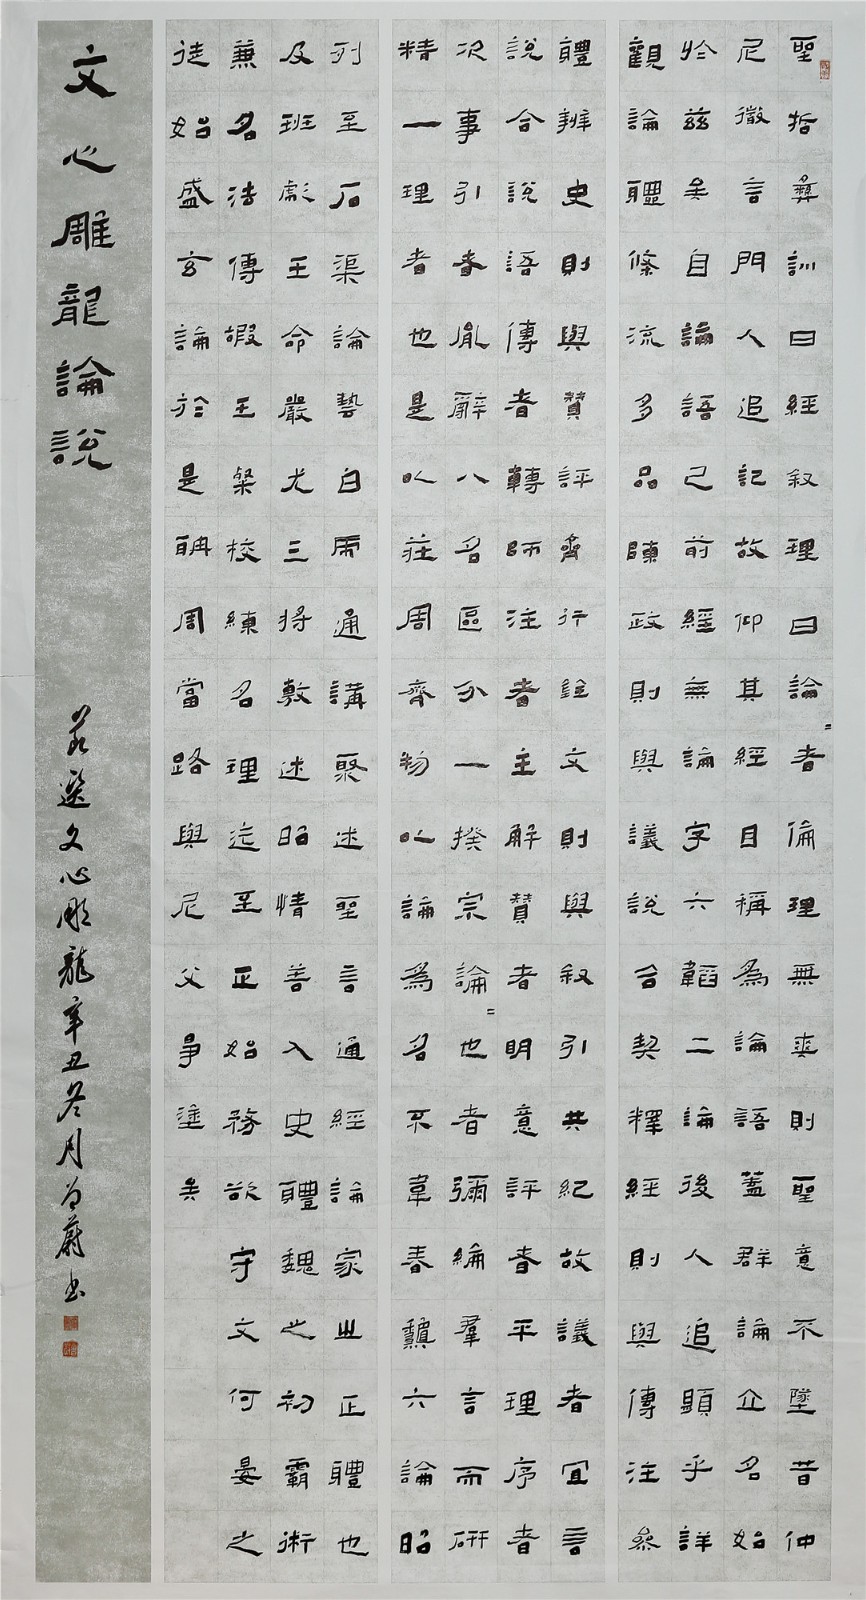 聖哲彝訓曰經叙理曰論〻者倫理無爽則聖意不墜昔仲
尼微言門人追記故仰其經目稱為論語蓋群論立名始
於茲矣自論語已前經無論字六韜二論後人追題乎詳
觀論體條流多品陳政則與議說合契釋經則與傳注參
體辨史則與贊評齊行銓文則與叙引共紀故議者宜言
說合說語傳者轉師注者主解贊者明意評者平理序者
次事引者胤辭八名區分一揆宗論〻也者彌綸羣言而研
精一理者也是以莊周齊物以論為名不韋春龝六論昭
列至石渠論藝白虎通講聚述聖言通經論家之正體也
及班彪王命嚴尤三將敷述昭情善入史體魏之初霸術
兼名法傅嘏王粲校練名理迄至正始務欲守文何晏之
徒始盛玄論於是聃周當路與尼父爭塗矣
文心雕龍論說
節選文心雕龍辛丑冬月蔚書